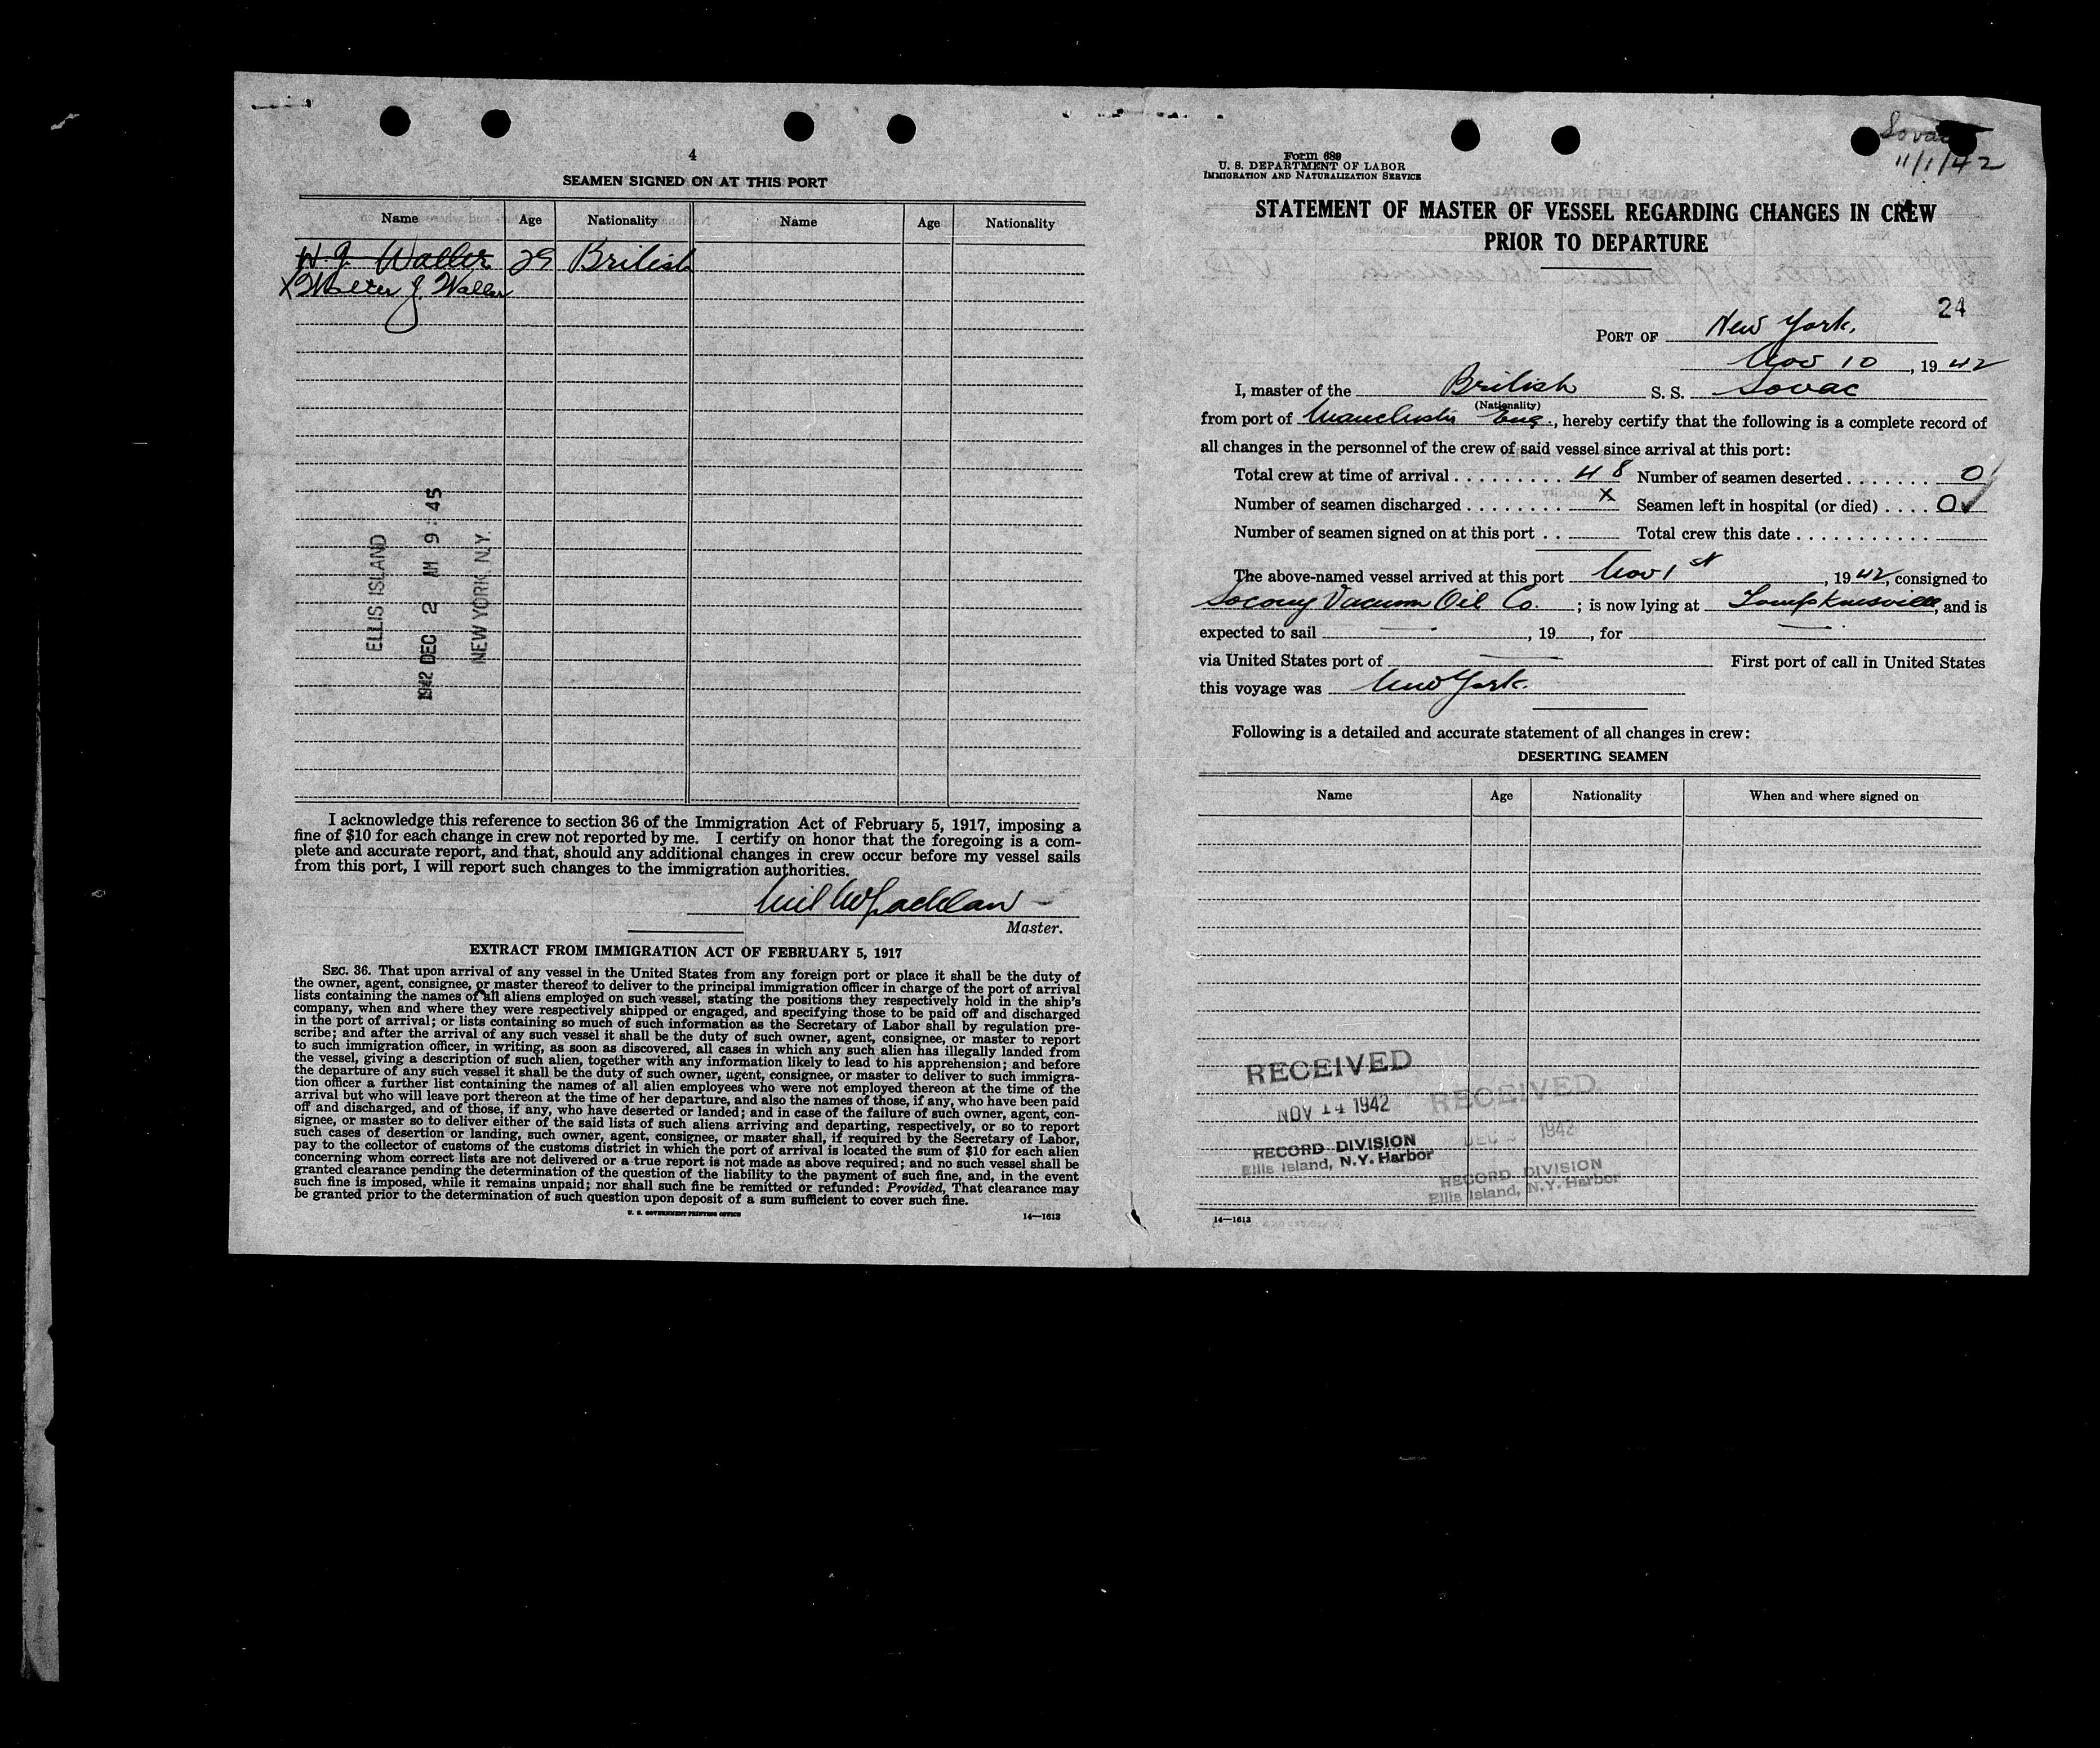 4
SEAMEN SIGNED ON AT THIS PORT
Name Age Nationality Name Age Nationality
W. J. Waller 29 British
X Walter J. Waller
ELLIS ISLAND
1942 DEC 2 AM 9:45
NEW YORK, N.Y.
I acknowledge this reference to section 36 of the Immigration Act of February 5, 1917, imposing a
fine of $10 for each change in crew not reported by me. I certify on honor that the foregoing is a com-
plete and accurate report, and that, should any additional changes in crew occur before my vessel sails
from this port, I will report such changes to the immigration authorities.
Neil McLachlan
Master.
EXTRACT FROM IMMIGRATION ACT OF FEBRUARY 5, 1917
SEC. 36. That upon arrival of any vessel in the United States from any foreign port or place it shall be the duty of
the owner, agent, consignee, or master thereof to deliver to the principal immigration officer in charge of the port of arrival
lists containing the names of all aliens employed on such vessel, stating the positions they respectively hold in the ship's
company, when and where they were respectively shipped or engaged, and specifying those to be paid off and discharged
in the port of arrival; or lists containing so much of such information as the Secretary of Labor shall by regulation pre-
scribe; and after the arrival of any such vessel it shall be the duty of such owner, agent, consignee, or master to report
to such immigration officer, in writing, as soon as discovered, all cases in which any such alien has illegally landed from
the vessel, giving a description of such alien, together with any information likely to lead to his apprehension; and before
the departure of any such vessel it shall be the duty of such owner, agent, consignee, or master to deliver to such immigra-
tion officer a further list containing the names of all alien employees who were not employed thereon at the time of the
arrival but who will leave port thereon at the time of her departure, and also the names of those, if any, who have been paid
off and discharged, and of those, if any, who have deserted or landed; and in case of the failure of such owner, agent, con-
signee, or master so to deliver either of the said lists of such aliens arriving and departing, respectively, or so to report
such cases of desertion or landing, such owner, agent, consignee, or master shall, if required by the Secretary of Labor,
pay to the collector of customs of the customs district in which the port of arrival is located the sum of $10 for each alien
concerning whom correct lists are not delivered or a true report is not made as above required; and no such vessel shall be
granted clearance pending the determination of the question of the liability to the payment of such fine, and, in the event
such fine is imposed, while it remains unpaid; nor shall such fine be remitted or refunded: Provided, That clearance may
be granted prior to the determination of such question upon deposit of a sum sufficient to cover such fine.
U. S. GOVERNMENT PRINTING OFFICE 14—1613
Sovac
11/1/42
Form 689
U. S. DEPARTMENT OF LABOR
IMMIGRATION AND NATURALIZATION SERVICE
STATEMENT OF MASTER OF VESSEL REGARDING CHANGES IN CREW
PRIOR TO DEPARTURE
24
PORT OF New York.
Nov 10, 1942
I, master of the British S. S. Sovac
(Nationality)
from port of Manchester Eng., hereby certify that the following is a complete record of
all changes in the personnel of the crew of said vessel since arrival at this port:
Total crew at time of arrival . . . . . . . . . 48 Number of seamen deserted . . . . . . . 0
Number of seamen discharged . . . . . . . . X Seamen left in hospital (or died) . . . . 0 ✓
Number of seamen signed on at this port . . Total crew this date . . . . . . . . . . .
The above-named vessel arrived at this port Nov 1st, 1942, consigned to
Socony Vacuum Oil Co. ; is now lying at Tompkinsville, and is
expected to sail —, 19 , for —
via United States port of — First port of call in United States
this voyage was New York.
Following is a detailed and accurate statement of all changes in crew:
DESERTING SEAMEN
Name Age Nationality When and where signed on
RECEIVED
NOV 14 1942
RECORD DIVISION
Ellis Island, N.Y. Harbor
RECEIVED
DEC 1942
RECORD DIVISION
Ellis Island, N.Y. Harbor
14—1613